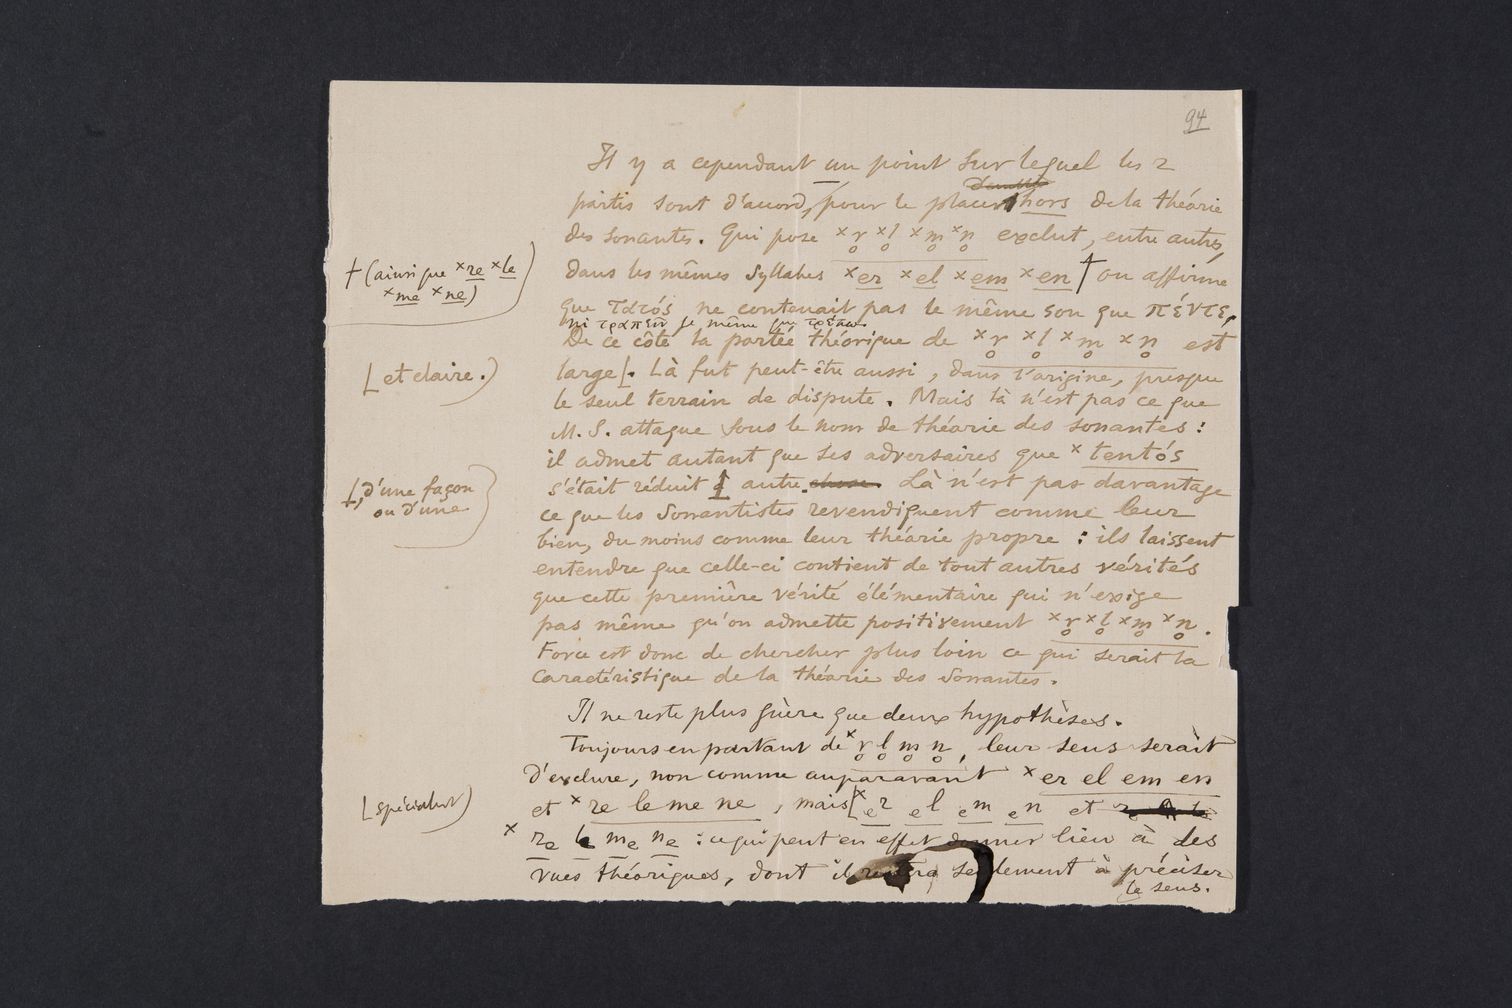 94
Il y a cependant un point sur lequel les 2
partis sont d'accord, pour le placer hors de la théorie
des sonantes. Qui pose ˣr̥ ˣl̥ ˣm̥ ˣn̥ exclut, entre autres,
dans les mêmes syllabes ˣer ˣel ˣem ˣen † ou affirme
† (ainsi que ˣre ˣle
ˣme ˣne)
que τατός ne contenait pas le même son que πέντε,
ni τραπεῖν le même que τρέπω.
De ce côté la portée théorique de ˣr̥ ˣl̥ ˣm̥ ˣn̥ est
large [. Là fut peut-être aussi, dans l'origine, presque
[ et claire.)
le seul terrain de dispute. Mais là n'est pas ce que
M. S. attaque sous le nom de théorie des sonantes :
il admet autant que ses adversaires que ˣtentós
s'était réduit ⸠ autre. chose. Là n'est pas davantage
⸠, d'une façon
ou d'une
ce que les Sonantistes revendiquent comme leur
bien, du moins comme leur théorie propre : ils laissent
entendre que celle-ci contient de tout autres vérités
que cette première vérité élémentaire qui n'exige
pas même qu'on admette positivement ˣr̥ ˣl̥ ˣm̥ ˣn̥.
Force est donc de chercher plus loin ce qui serait la
caractéristique de la théorie des Sonantes.
Il ne reste plus guère que deux hypothèses.
Toujours en partant de ˣr̥ l̥ m̥ n̥, leur sens serait
d'exclure, non comme auparavant ˣer el em en
et ˣre le me ne, mais [ ˣₑr ₑl ₑm ₑn et
[ spécialemt)
ˣrₑ lₑ mₑ nₑ : ce qui peut en effet donner lieu à des
vues théoriques, dont il restera seulement à préciser
le sens.